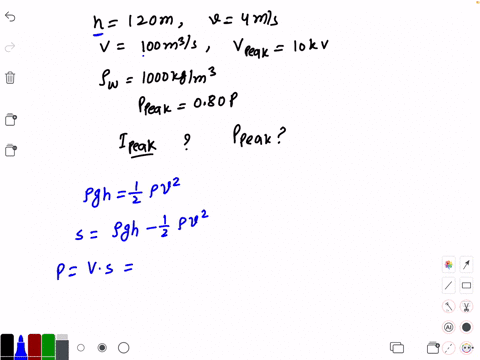 h = 120m, v = 4m/s
V = 100m³/s, V_peak = 10kV
ρ_w = 1000kg/m³
P_peak = 0.80P
I_peak ? P_peak?
ρgh = 1/2 ρv²
s = ρgh - 1/2 ρv²
P = V·s =